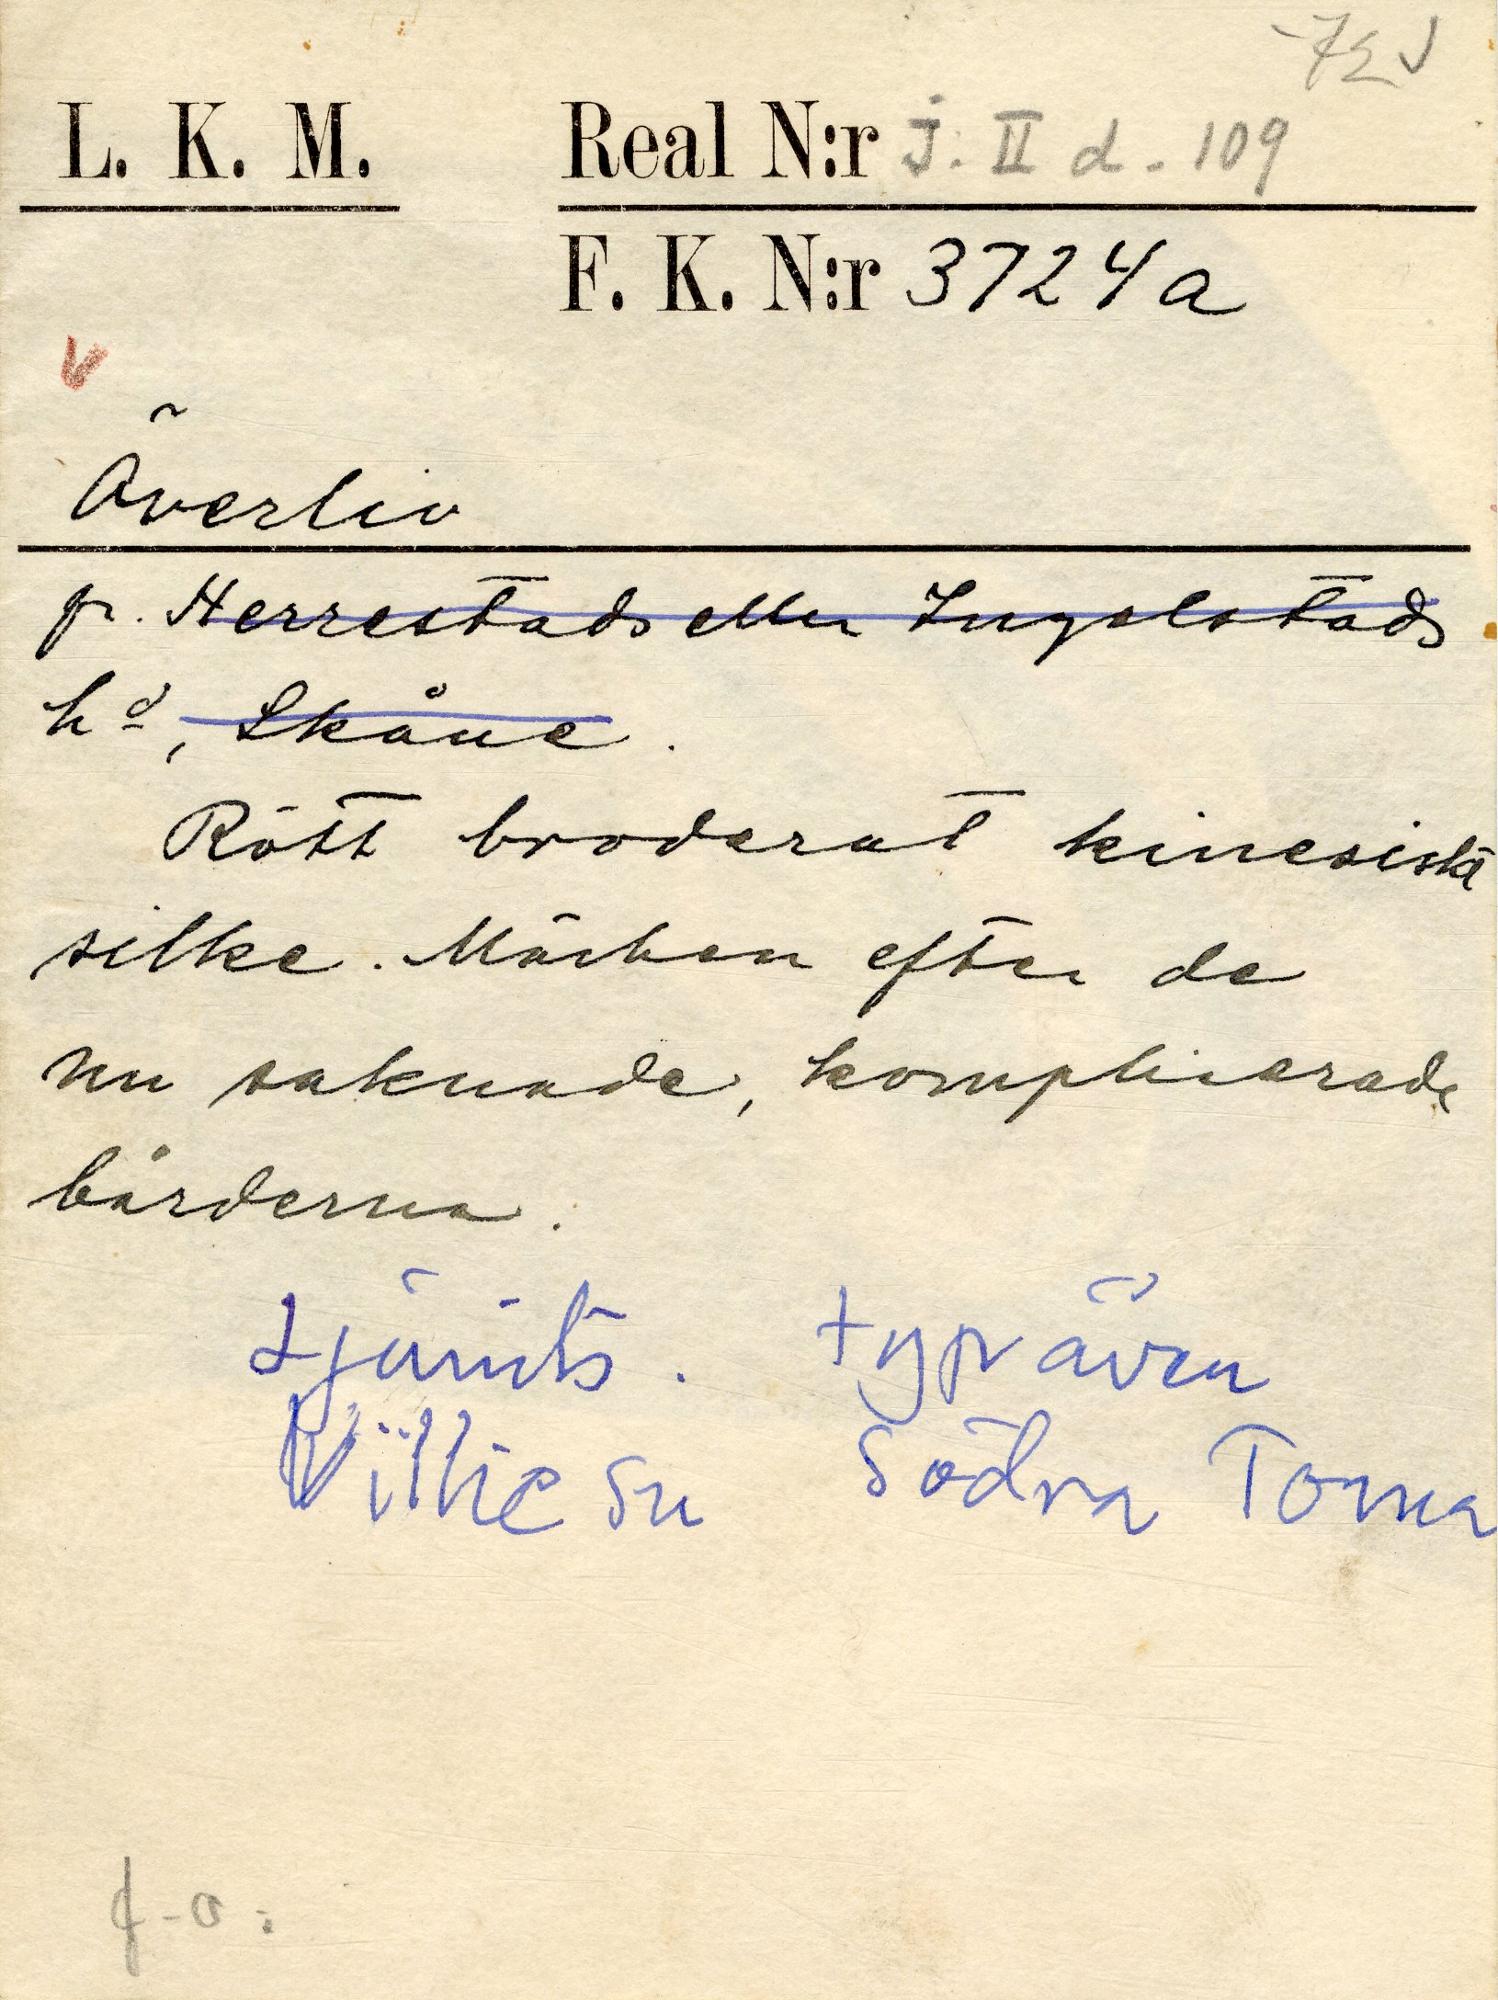 L. K. M. Real N:r J. II d. 109
F. K. N:r 3724a
Överliv
fr. Herrestads eller Ingelstads
hd, Skåne.
Rött broderat kinesiskt
silke. Märken efter de
nu saknade, komplicerade
bårderna.
Ljunits. typ även
Villie sn Södra Torna